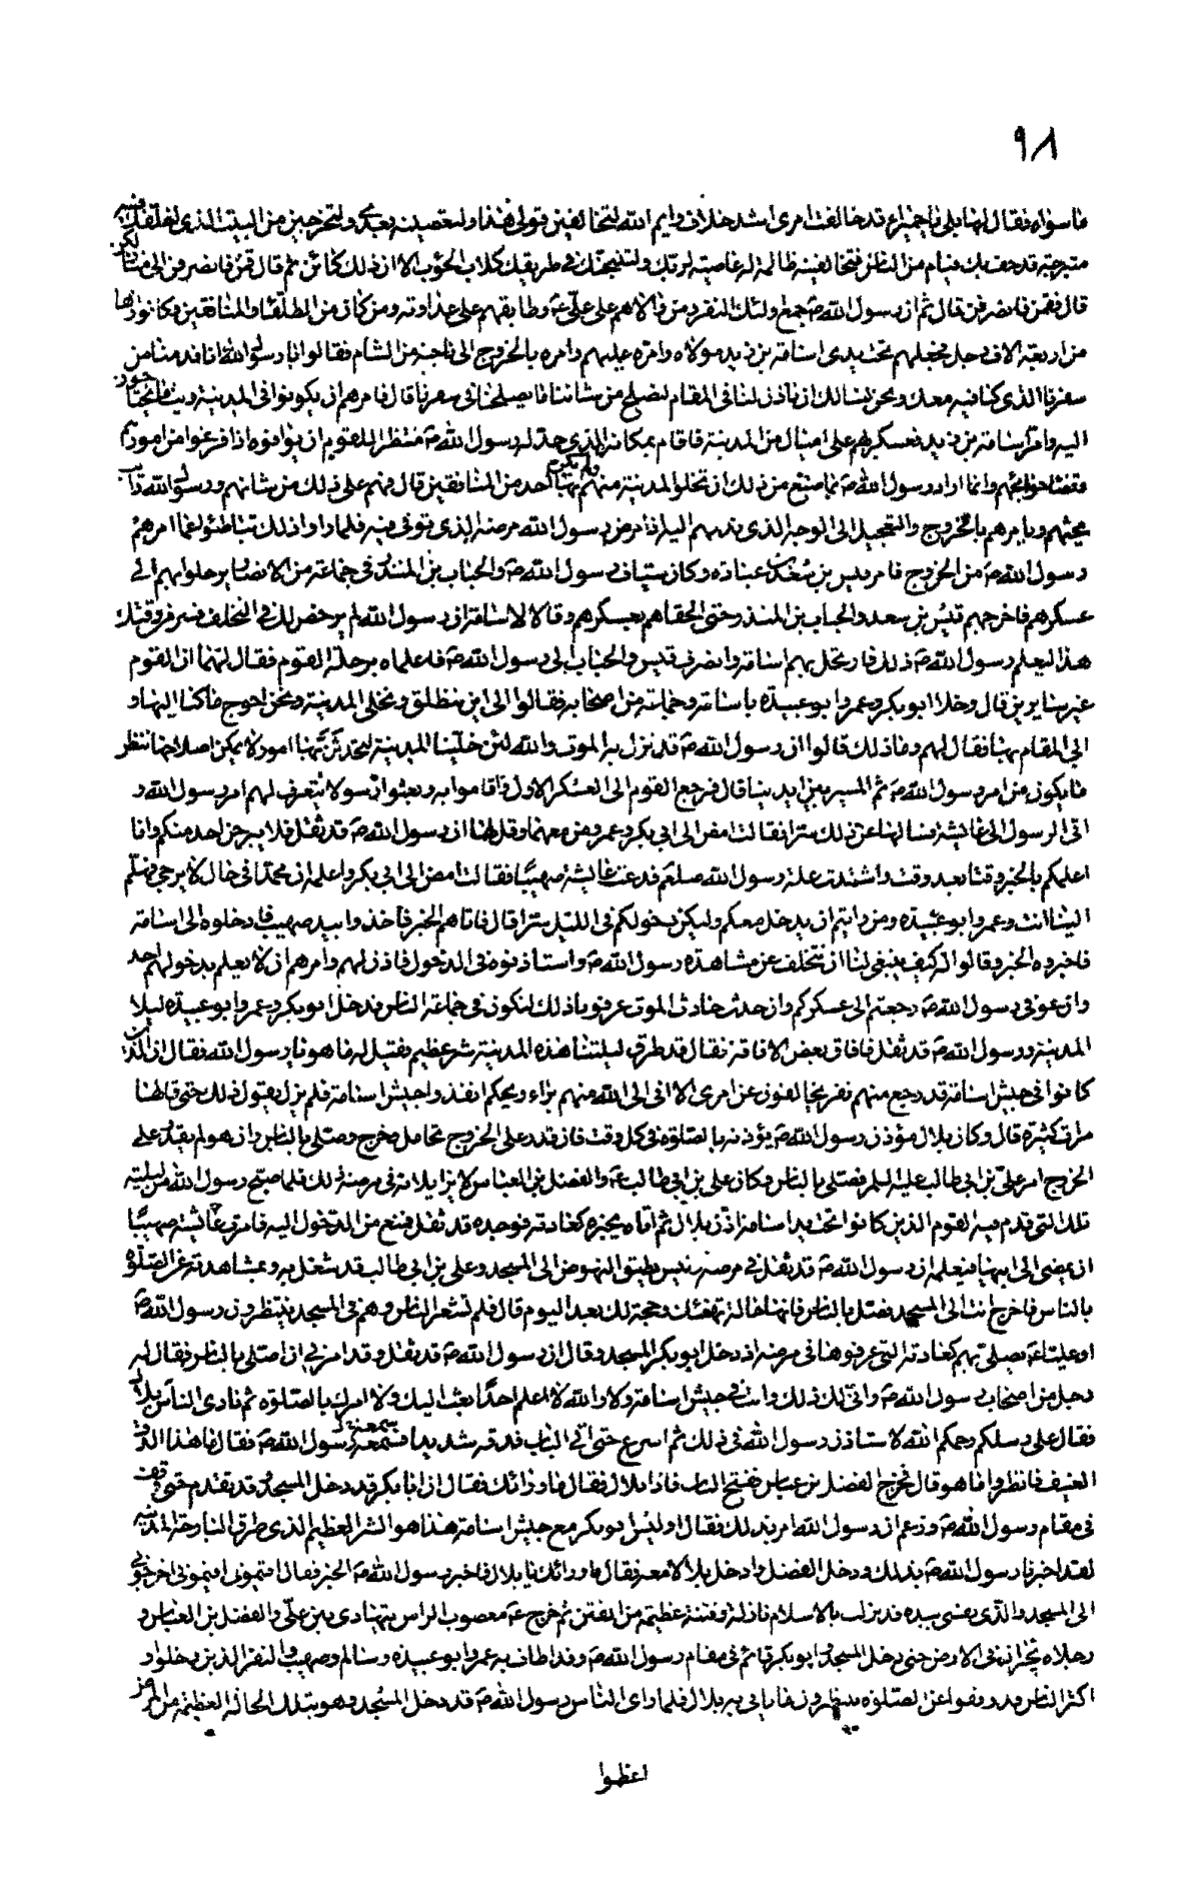 ٩٨
ما سواه فقال لها بلى يا حميراء قد خالفت امرى اشد خلاف وايم الله لتخالفين قولى هذا ولتعصينه بعدى ولتخرجين من البيت الذى اخلفك فيه
متبرجة قد حف بك فئام من الناس فتخالفينه ظالمة له عاصية لربك ولتنبحنك فى طريقك كلاب الحوئب الا ان ذلك كائن ثم قال قمن فانصرفن الى منازلكن
قال فقمن فانصرفن قال ثم ان رسول الله ص جمع اولئك النفر ومن والاهم على على ع وطابقهم على عداوته ومن كان من الطلقاء والمنافقين وكانوا زهاء
من اربعة الاف رجل فجعلهم تحت يدى اسامة بن زيد مولاه وامره عليهم وامره بالخروج الى ناحية من الشام فقالوا يا رسول الله انا قدمنا من
سفرنا الذى كنا فيه معك ونحن نسالك ان تاذن لنا فى المقام لنصلح من شاننا ما يصلحنا فى سفرنا قال فامرهم ان يكونوا فى المدينة ريث ما يحتاجون
اليه وامر اسامة بن زيد فعسكر بهم على اميال من المدينة فاقام بمكانه الذى حد له رسول الله ص منتظرا للقوم ان يوافوه اذا فرغوا من امورهم
وقضاء حوائجهم وانما اراد رسول الله ص بما صنع من ذلك ان تخلوا المدينة منهم ولا يبقى بها احد من المنافقين قال فهم على ذلك من شانهم ورسول الله ص دائب
يحثهم ويامرهم بالخروج والتعجيل الى الوجه الذى ندبهم اليه اذ مرض رسول الله مرضه الذى توفى فيه فلما راوا ذلك تباطئوا عما امرهم
رسول الله ص من الخروج فامر قيس بن سعد بن عبادة وكان سياف رسول الله ص والحباب بن المنذر فى جماعة من الانصار يرحلوا بهم الى
عسكرهم فاخرجهم قيس بن سعد والحباب بن المنذر حتى الحقاهم بعسكرهم وقالا لاسامة ان رسول الله لم يرخص لك فى التخلف فسر من وقتك
هذا ليعلم رسول الله ص ذلك فارتحل بهم اسامة وانصرف قيس والحباب الى رسول الله ص فاعلماه برحلة القوم فقال لهما ان القوم
غير سائرين قال وخلا ابو بكر وعمر وابو عبيدة باسامة وجماعة من اصحابه فقالوا الى اين ننطلق ونخلى المدينة ونحن احوج ما كنا اليها و
الى المقام بها فقال لهم وما ذلك قالوا ان رسول الله ص قد نزل به الموت والله لئن خلينا المدينة لتحدثن بها امور لا يمكن اصلاحها ننظر
ما يكون من امر رسول الله ص ثم المسير بين ايدينا قال فرجع القوم الى المعسكر الاول فاقاموا به وبعثوا رسولا يتعرف لهم امر رسول الله و
اتى الرسول الى عائشة فسالها عن ذلك سرا فقالت امض الى ابى بكر وعمر ومن معهما وقل لهما ان رسول الله ص قد ثقل فلا يبرحن احد منكم وانا
اعلمكم بالخبر وقتا بعد وقت واشتدت علة رسول الله صلعم فدعت عائشة صهيبا فقالت امض الى ابى بكر واعلمه ان محمدا فى حال لا يرجى فهلم
الينا انت وعمر وابو عبيدة ومن رايتم ان يدخل معكم وليكن دخولكم فى الليل سرا قال فاتاهم الخبر فاخذوا بيد صهيب فادخلوه الى اسامة
فاخبروه الخبر وقالوا له كيف ينبغى لنا ان نتخلف عن مشاهدة رسول الله ص واستاذنوه فى الدخول فاذن لهم وامرهم ان لا يعلم بدخولهم احد
وان عوفى رسول الله ص رجعتم الى عسكركم وان حدث حادث الموت عرفونا ذلك لنكون فى جماعة الناس فدخل ابو بكر وعمر وابو عبيدة ليلا
المدينة ورسول الله ص قد ثقل فافاق بعض الافاقة فقال قد طرق ليلتنا هذه المدينة شر عظيم فقيل له وما هو يا رسول الله فقال ان الذين
كانوا فى جيش اسامة قد رجع منهم نفر يخالفون عن امرى الا انى الى الله منهم براء ويحكم انفذوا جيش اسامة فلم يزل يقول ذلك حتى قالها
مرات كثيرة قال وكان بلال مؤذن رسول الله ص يؤذنه بالصلوة فى كل وقت فان قدر على الخروج تحامل وخرج وصلى بالناس وان هو لم يقدر على
الخروج امر على بن ابى طالب عليه السلم فصلى بالناس وكان على بن ابى طالب ع والفضل بن العباس لا يزايلانه فى مرضه ذلك فلما صبح رسول الله من ليلته
تلك التى قدم فيها القوم الذين كانوا تحت يد اسامة اذن بلال ثم اتاه يخبره كعادته فوجده قد ثقل فمنع من الدخول اليه فامرت عائشة صهيبا
ان يمضى الى ابيها فيعلمه ان رسول الله ص قد ثقل فى مرضه فليس يطيق النهوض الى المسجد وعلى بن ابى طالب قد شغل به وبمشاهدته عن الصلوة
بالناس فاخرج انت الى المسجد فصل بالناس فانها حالة تهنئك وحجة لك بعد اليوم قال فلم تشعر الناس وهم فى المسجد ينتظرون رسول الله ص
او عليا ع يصلى بهم كعادته التى عرفوها فى مرضه اذ دخل ابو بكر المسجد وقال ان رسول الله ص قد ثقل وقد امرنى ان اصلى بالناس فقال له
رجل من اصحاب رسول الله ص وانى لك ذلك وانت فى جيش اسامة ولا والله لا اعلم احدا بعث اليك ولا امرك بالصلوة ثم نادى الناس بلال
فقال على رسلكم رحمكم الله لاستاذن رسول الله فى ذلك ثم اسرع حتى اتى الباب فدقه دقا شديدا فسمعه رسول الله ص فقال ما هذا الدق
العنيف فانظروا ما هو قال فخرج الفضل بن عباس ففتح الباب فاذا بلال فقال ما وراءك فقال ان ابا بكر قد دخل المسجد وقد تقدم حتى وقف
فى مقام رسول الله ص وزعم ان رسول الله امره بذلك فقال اوليس ابو بكر مع جيش اسامة هذا هو الشر العظيم الذى طرق البارحة المدينة
لقد اخبرنا رسول الله ص بذلك ودخل الفضل وادخل بلالا معه فقال ما وراءك يا بلال فاخبر رسول الله ص الخبر فقال اقيمونى اقيمونى اخرجوا بى
الى المسجد والذى نفسى بيده قد نزلت بالاسلام نازلة وفتنة عظيمة من الفتن ثم خرج ع معصوب الراس يتهادى بين على والفضل بن العباس و
رجلاه يجران فى الارض حتى دخل المسجد وابو بكر قائم فى مقام رسول الله ص وقد اطاف به عمر وابو عبيدة وسالم وصهيب والنفر الذين دخلوا و
اكثر الناس قد وقفوا عن الصلوة ينتظرون ما ياتى به بلال فلما راى الناس رسول الله ص قد دخل المسجد وهو بتلك الحالة العظيمة من المرض
اعظموا